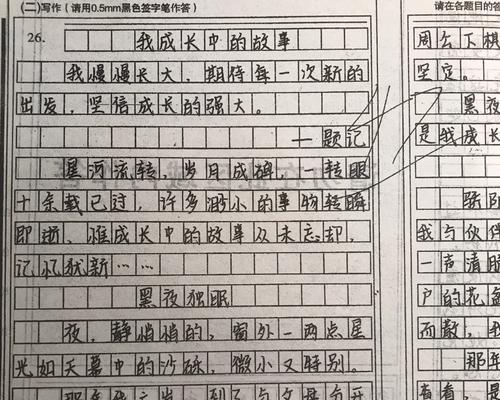 (二)写作(请用0.5mm黑色签字笔作答)
请在各题目的答
26.
我成长中的故事
我慢慢长大,期待每一次新的
出发,坚信成长的强大。
—题记
星河流转,岁月成碑,转眼
十余载已过,许多渺小的事物转瞬
即逝,惟成长中的故事从未忘却,
记忆犹新……
黑夜独眠
夜,静悄悄的,窗外一两点星
光如天幕中的沙砾,微小又特别。
周公下棋
坚定。
黑夜
是我成长
际
我与伙伴
一声清脆
户的花
而散,我
那年
看看,是